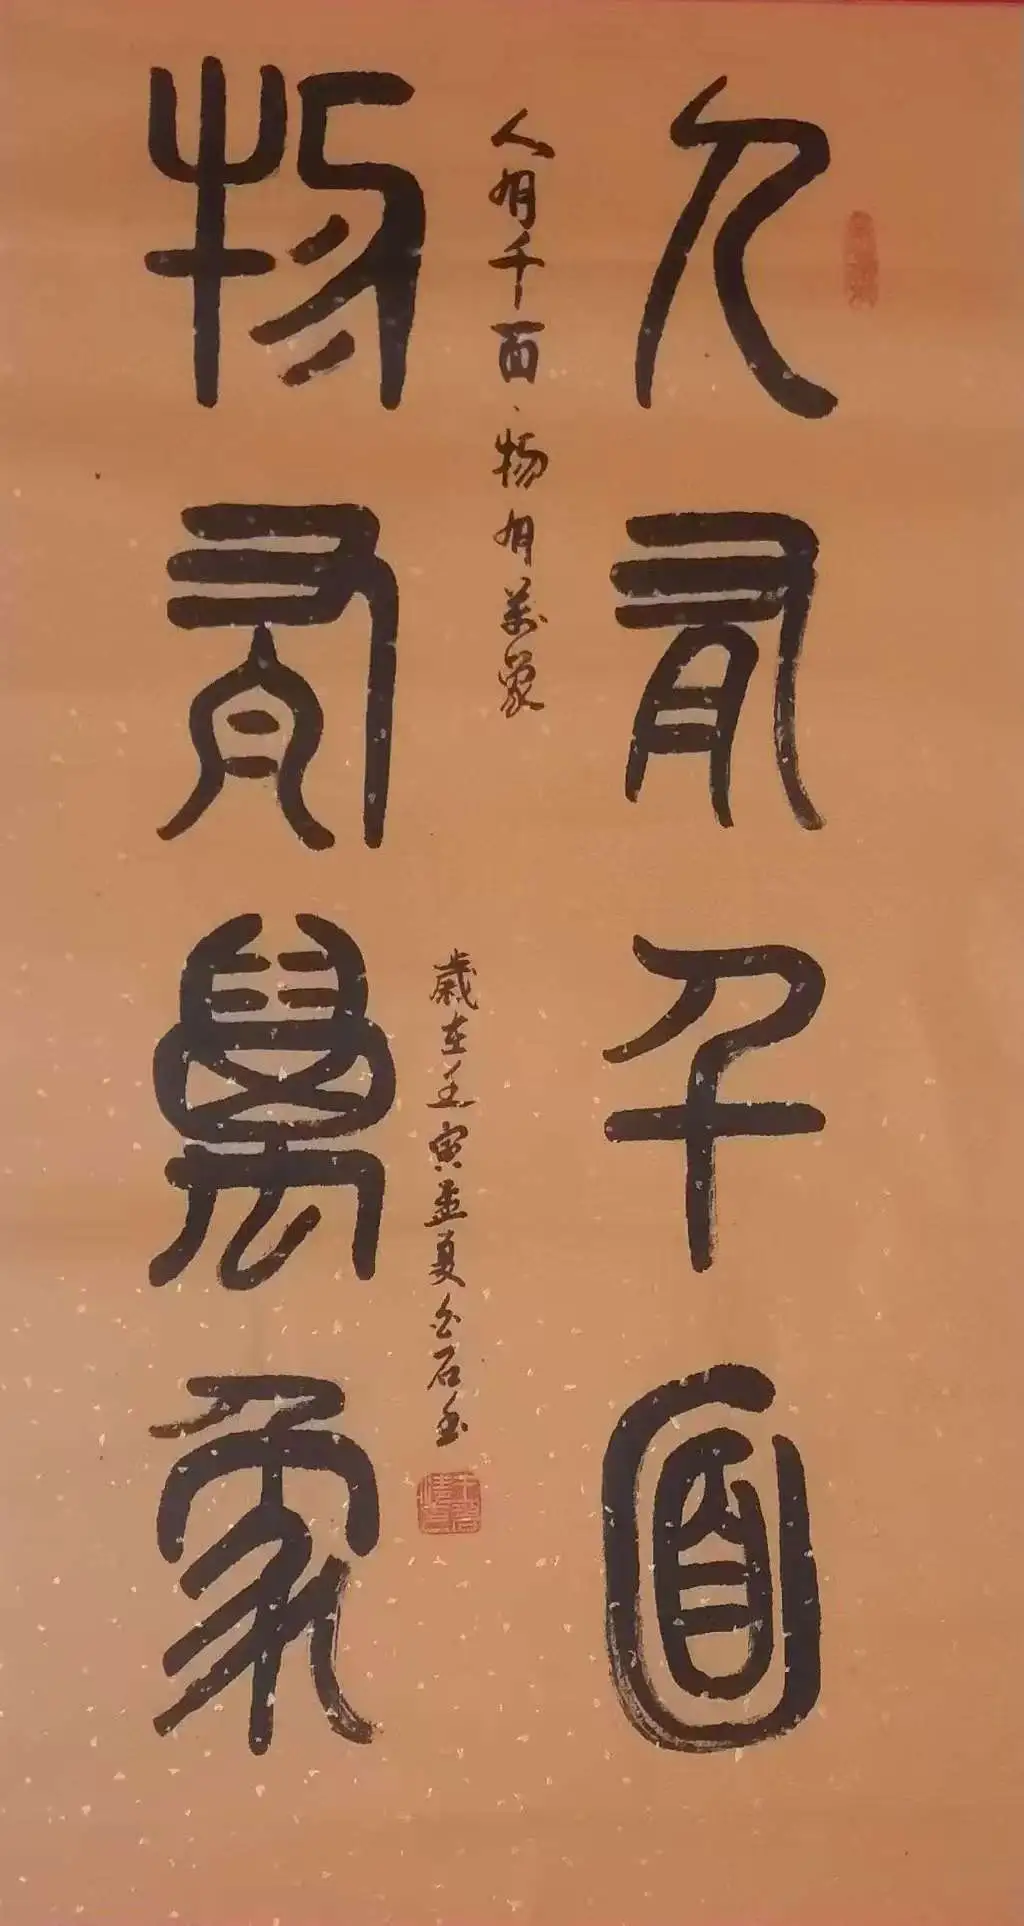 人有千面
人有千面、物有萬象
物有萬象
歲在壬寅孟夏白石書